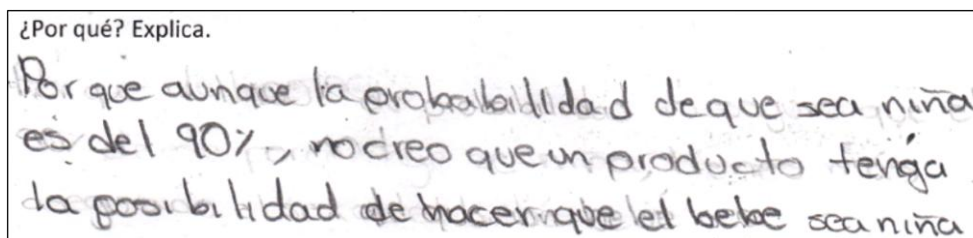 ¿Por qué? Explica.
Por que aunque la probabilidad de que sea niña
es del 90%, no creo que un producto tenga
la posibilidad de hacer que el bebe sea niña